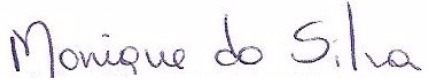 Monique do Silva